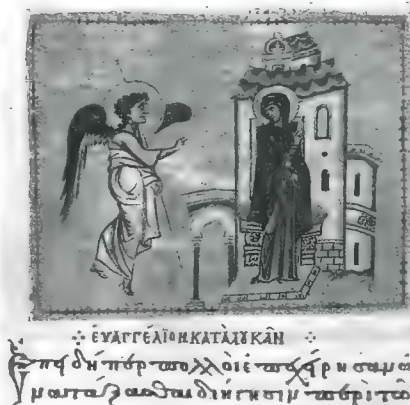 ⁘ ΕΥΑΓΓΕΛΙΟΝ ΚΑΤΑ ΛΟΥΚΑΝ ⁘
Ἐπηδήπερ πολλοὶ ἐπεχείρησαν ἀ
νατάξασθαι διήγησιν περὶ τῶ